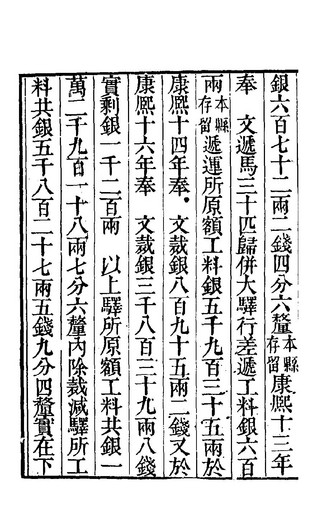 銀六百七十二兩二錢四分六釐本縣存留康熙十三年
奉　文遞馬三十匹歸併大驛行差遞工料銀六百
兩本縣存留遞運所原額工料銀五千九百三十五兩於
康熙十四年奉　文裁銀八百九十五兩二錢又於
康熙十六年奉　文裁銀三千八百三十九兩八錢
實剩銀一千二百兩　以上驛所原額工料共銀一
萬二千九百一十八兩七分六釐內除裁減驛所工
料共銀五千八百二十七兩五錢九分四釐實在下